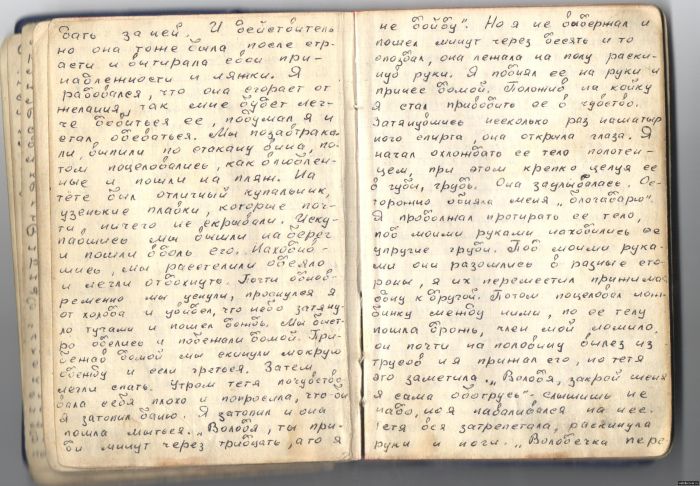 бать за ней. И действитель
но она тоже была после стр-
асти и вытирала свои при-
надлежности и ляжки. Я
радовался, что она сгорает от
желания, так мне будет лег-
че добиться ее, подумал я и
стал одеваться. Мы позавтрака-
ли, выпили по стакану вина, по-
том поцеловались, как влюблен-
ные и пошли на пляж. На
тете был отличный купальник,
узенькие плавки, которые поч-
ти ничего не скрывали. Иску-
павшись мы вышли на берег
и пошли вдоль его. Находив-
шись, мы расстелили одеяло
и легли отдохнуть. Почти однов-
ременно мы уснули, проснулся я
от холода и увидел, что небо затяну-
ло тучами и пошел дождь. Мы быст-
ро оделись и побежали домой. При-
бежав домой мы скинули мокрую
одежду и сели греться. Затем
легли спать. Утром тетя почувство
вала себя плохо и попросила, что-бы
я затопил баню. Я затопил и она
пошла мыться. „Володя, ты при-
ди минут через тридцать, а то я
не дойду". Но я не выдержал и
пошел минут через десять и то
опоздал, она лежала на полу раски-
нув руки. Я поднял ее на руки и
принес домой. Положив на койку
я стал приводить ее в чувство.
Затянувшись несколько раз нашатыр
ного спирта, она открыла глаза. Я
начал охлаждать ее тело полотен-
цем, при этом крепко целуя ее
в губы, грудь. Она заулыбалась. Ос-
торожно обняла меня „благодарю".
Я продолжал протирать ее тело,
под моими руками находились ее
упругие груди. Под моими рука-
ми они разошлись в разные сто-
роны, я их переместил прижимая
одну к другой. Потом поцеловал лож-
бинку между ними, по ее телу
пошла дрожь, член мой ломило.
он почти на половину вылез из
трусов и я прижал его, но тетя
это заметила. „Володя, закрой меня
я сама оботрусь" - слышишь не
надо, но я наваливался на нее.
Тетя вся затрепетала, раскинула
руки и ноги. „Володечка пере